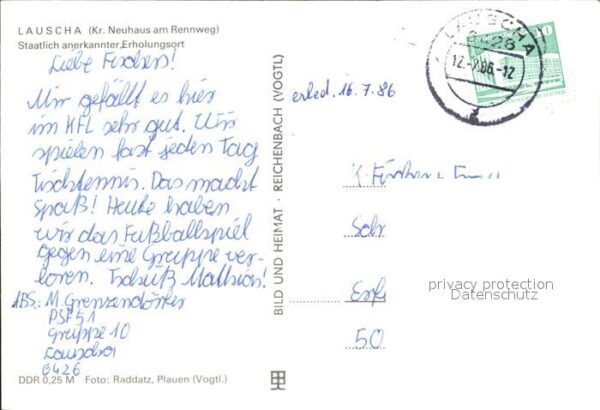 LAUSCHA (Kr. Neuhaus am Rennweg)
Staatlich anerkannter Erholungsort
Liebe Fischers!
Mir gefällt es hier
im KFL sehr gut. Wir
spielen fast jeden Tag
Tischtennis. Das macht
spaß! Heute haben
wir das Fußballspiel
gegen eine Gruppe ver-
loren. Tschüß Mathias!
ABS.: M. Grenzendörfer
PSF 51
Gruppe 10
Lauscha
6426
DDR 0,25 M Foto: Raddatz, Plauen (Vogtl.)
BILD UND HEIMAT · REICHENBACH (VOGTL)
erled. 16.7.86
LAUSCHA
6426
12.-7.86.-12
10
50
privacy protection
Datenschutz